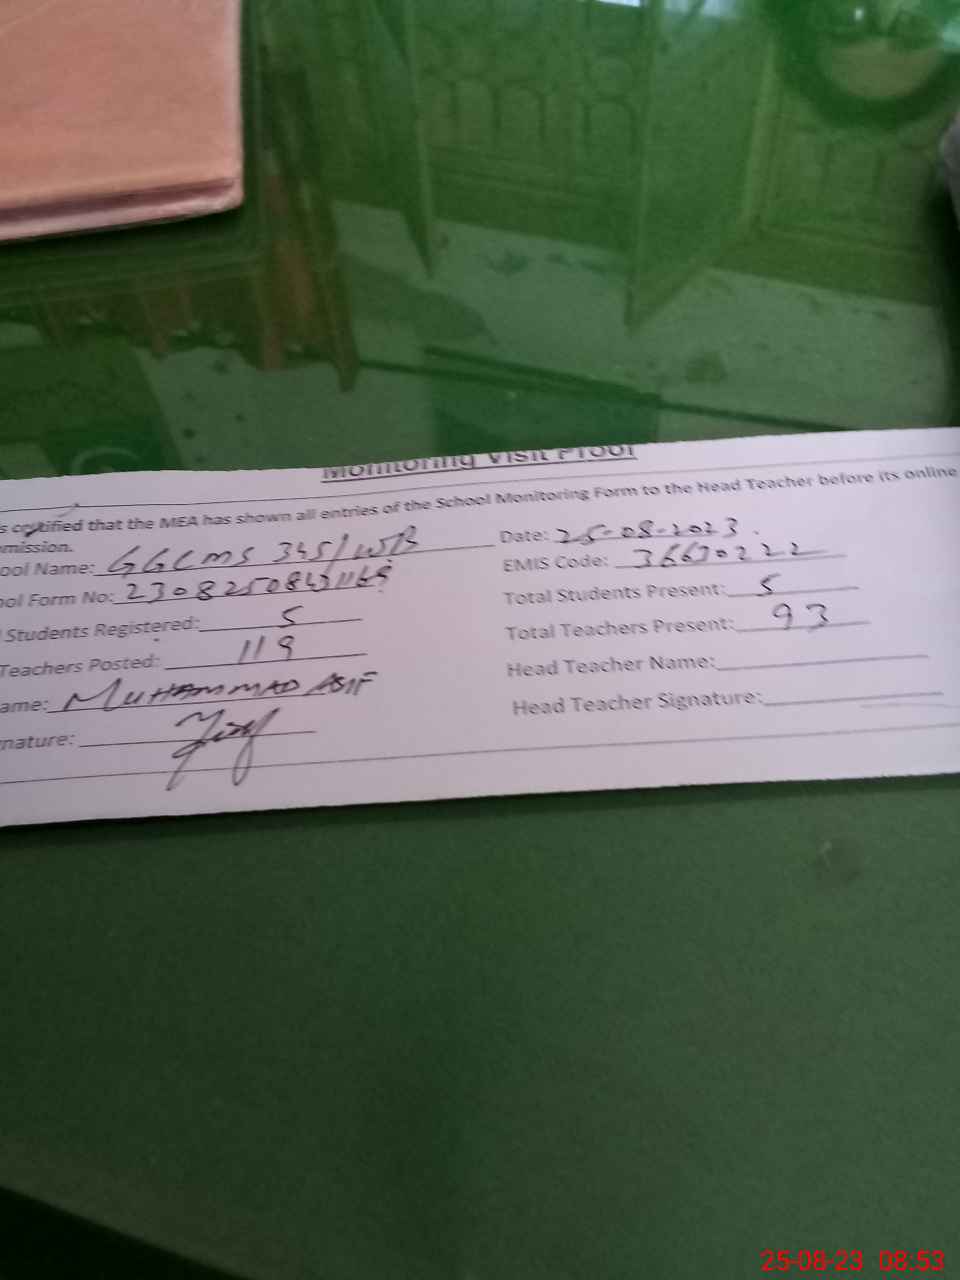 Monitoring Visit Proof
s certified that the MEA has shown all entries of the School Monitoring Form to the Head Teacher before its online
mission.
ool Name: GGCMS 345/WB Date: 25-08-2023.
ool Form No: EMIS Code: 36630222
Students Registered: 5 Total Students Present: 5
Teachers Posted: 119 Total Teachers Present: 93
ame: MUHAMMAD ASIF Head Teacher Name:
nature: Head Teacher Signature:
25-08-23 08:53